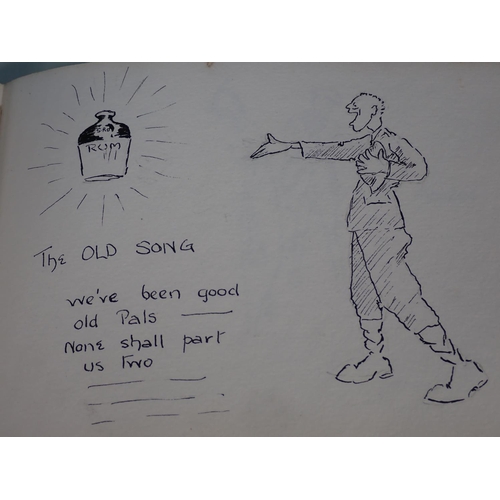 RUM
The OLD SONG
we've been good
old Pals
None shall part
us Two